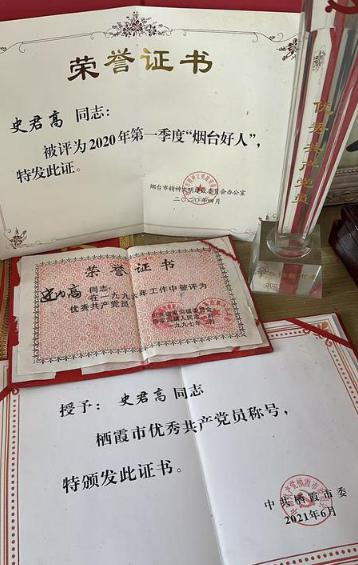 荣誉证书
史君高 同志：
被评为2020年第一季度“烟台好人”，
特发此证。
烟台市精神文明建设委员会办公室
二〇二〇年四月
优秀共产党员
荣誉证书
史君高 同志：
在一九九六年工作中被评为
优秀共产党员
一九九七年
授予： 史君高 同志
栖霞市优秀共产党员称号，
特颁发此证书。
中共栖霞市委
2021年6月